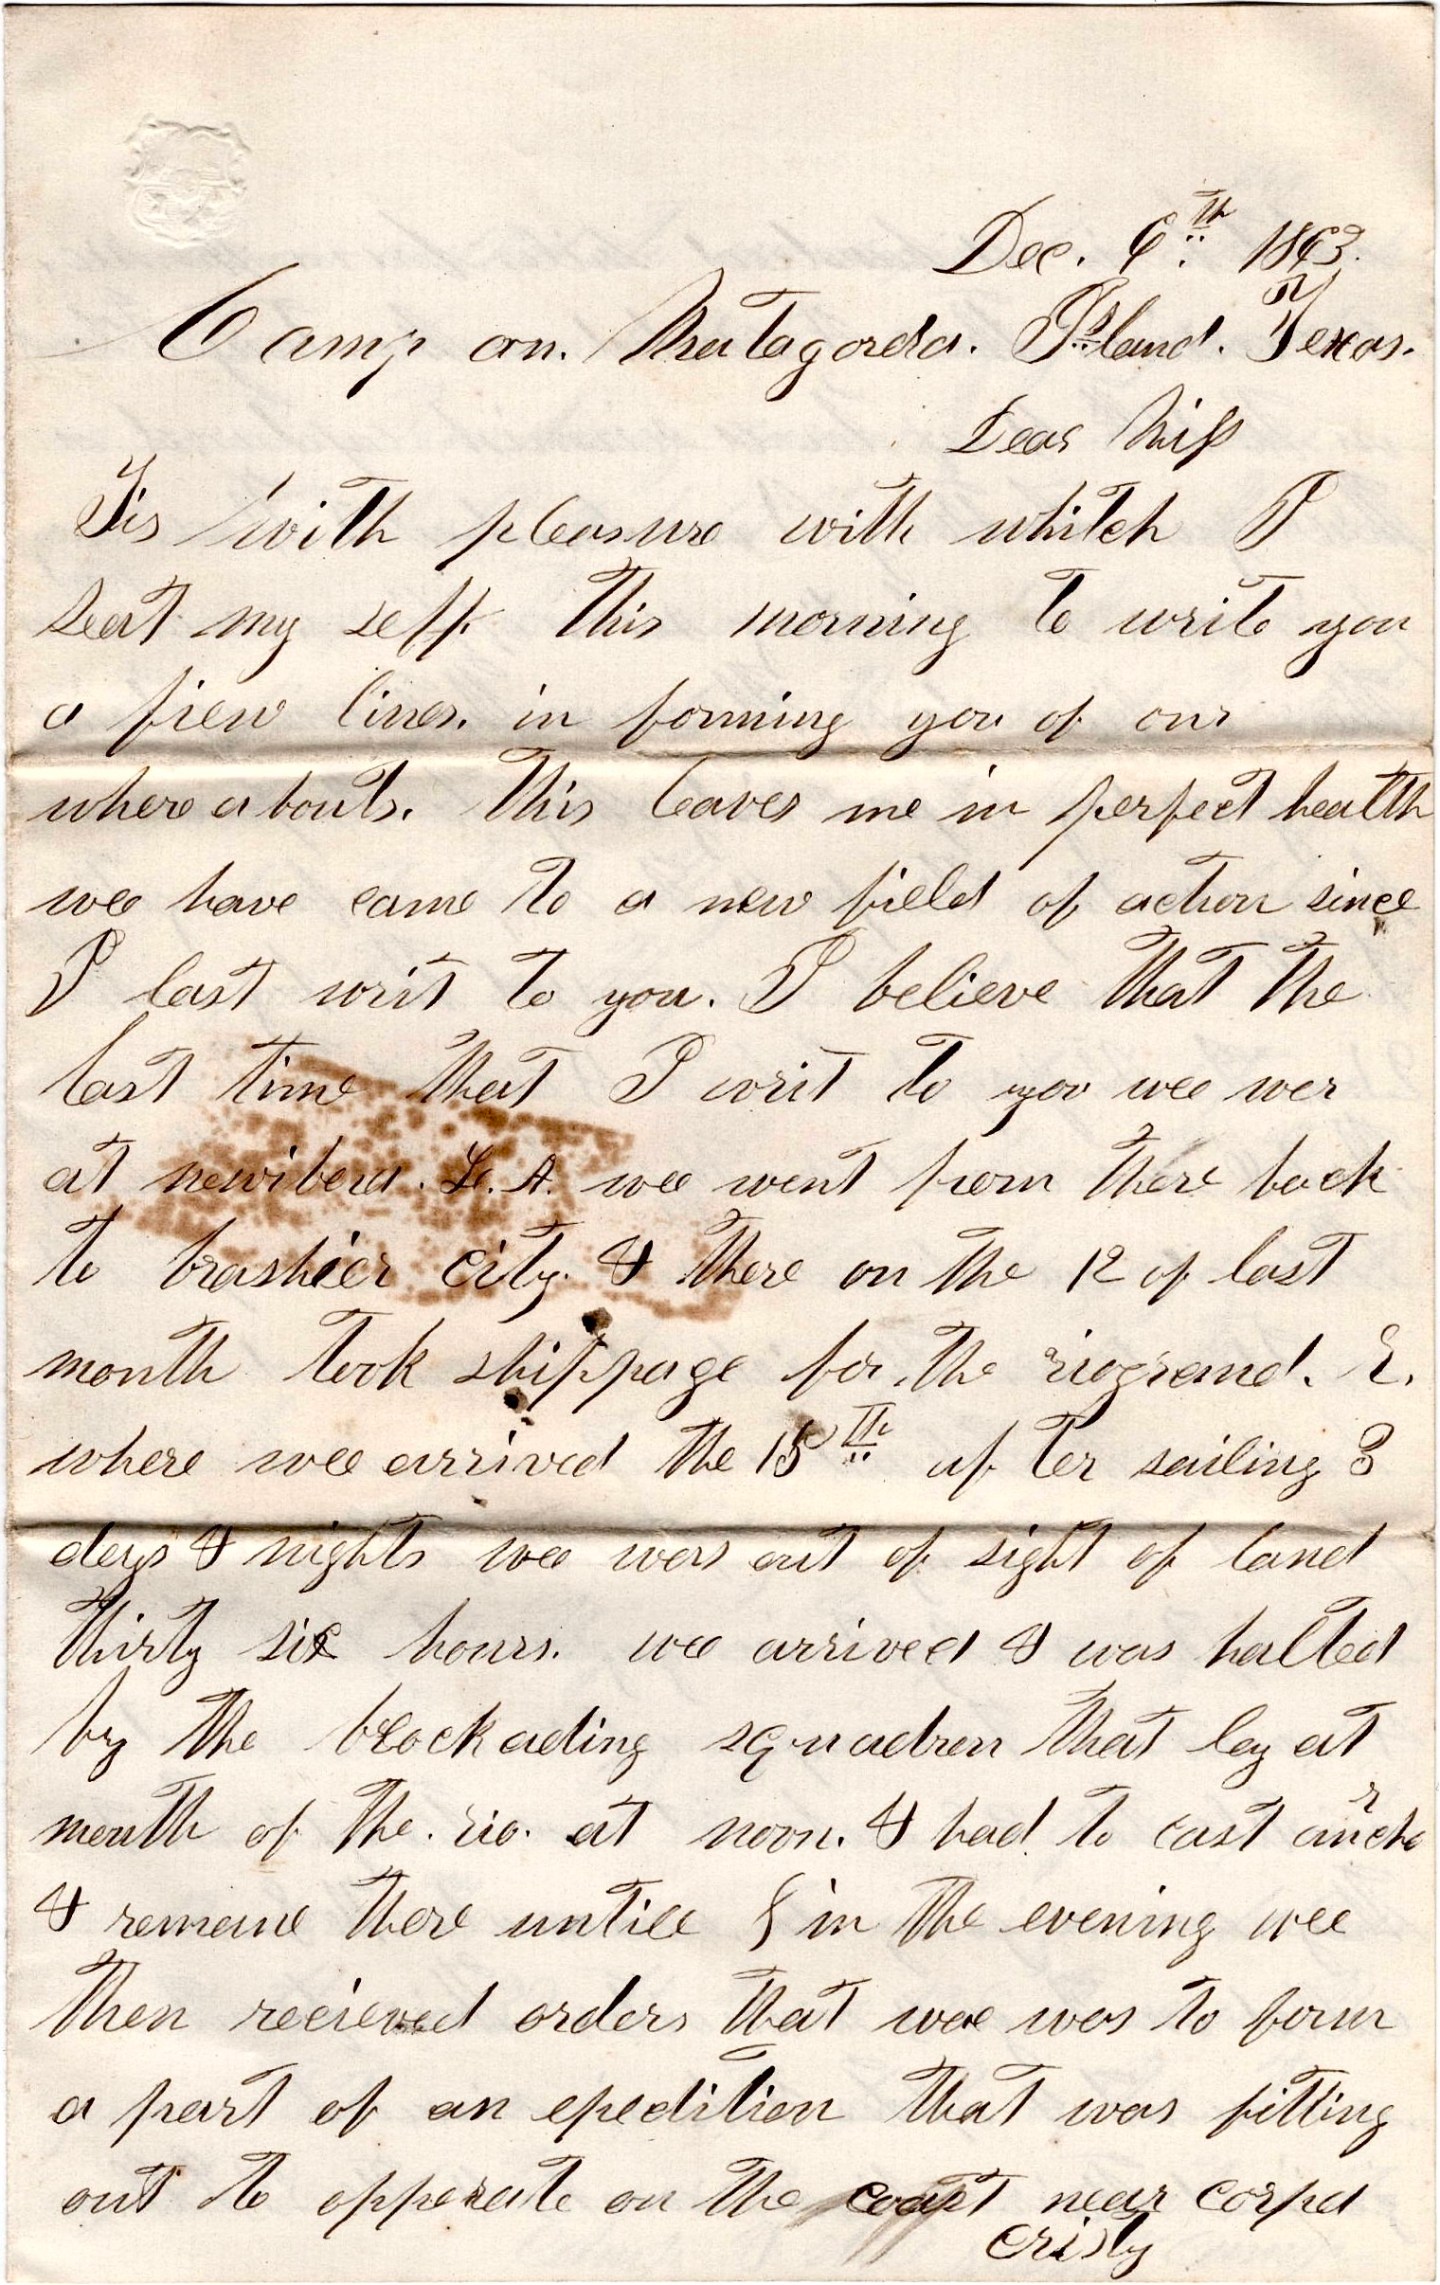 Dec. 6th 1863.
Camp on. Matagorda. Island. Texas.
Dear Miss
Tis with pleasure with whitch I
seat my self this morning to write you
a fiew lines. in forming you of our
where a bouts. This leaves me in perfect health
wee have came to a new field of action since
I last writ to you. I believe that the
last time that I writ to you wee wer
at newibera. L.A. wee went from there back
to brashier city. & there on the 12 of last
month took shippage for the riogrand. R.
where wee arrived the 15th af ter sailing 3
days & nights wee was out of sight of land
thirty six hours. wee arrived & was halted
by the blockading squadren that lay at
mouth of the. rio. at noon. & had to cast anchor
& remane there untill in the evening wee
then recieved orders that wee was to form
a part of an epedition that was fitting
out to opperate on the coast near corpa
cristy